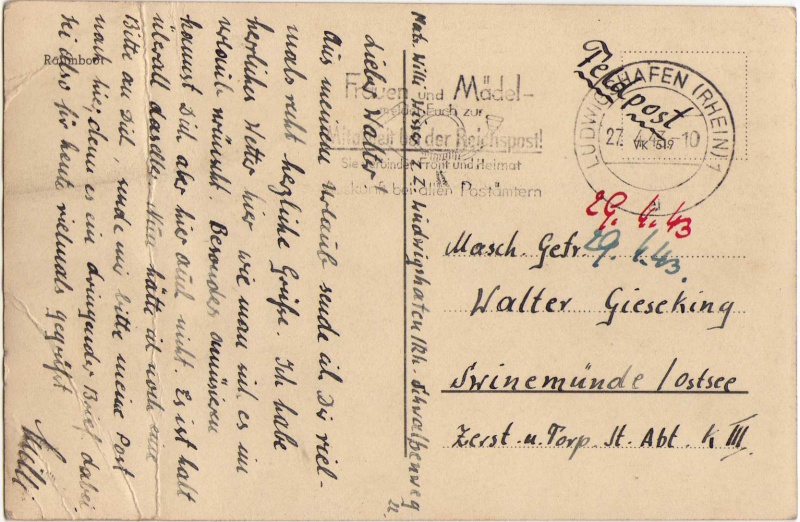 Lieber Walter!
Aus meinem Urlaub sende ich Dir viel-
mals recht herzliche Grüße. Ich habe
herrliches Wetter hier wie man sich es im
Urlaub wünscht. Besonders amüsieren
kannst Dich aber hier auch nicht. Es ist halt
überall dasselbe. Nun hätte ich noch eine
Bitte an Dich, sende mir bitte meine Post
nach hier, denn es ein dringender Brief dabei
sei also für heute vielmals gegrüßt
Willi
Matr. Willy z.Z. Ludwigshafen/Rh. Schwalbenweg
22.
Frauen und Mädel-
meldet Euch zur
Mitarbeit bei der Reichspost!
Sie verbindet Front und Heimat
Auskunft bei allen Postämtern
Feldpost
LUDWIGSHAFEN (RHEIN) 1
27.4.43-10
29.4.43
29.4.43.
Masch. Gefr.
Walter Gieseking
Swinemünde/Ostsee
Zerst. u. Torp. St. Abt. K III